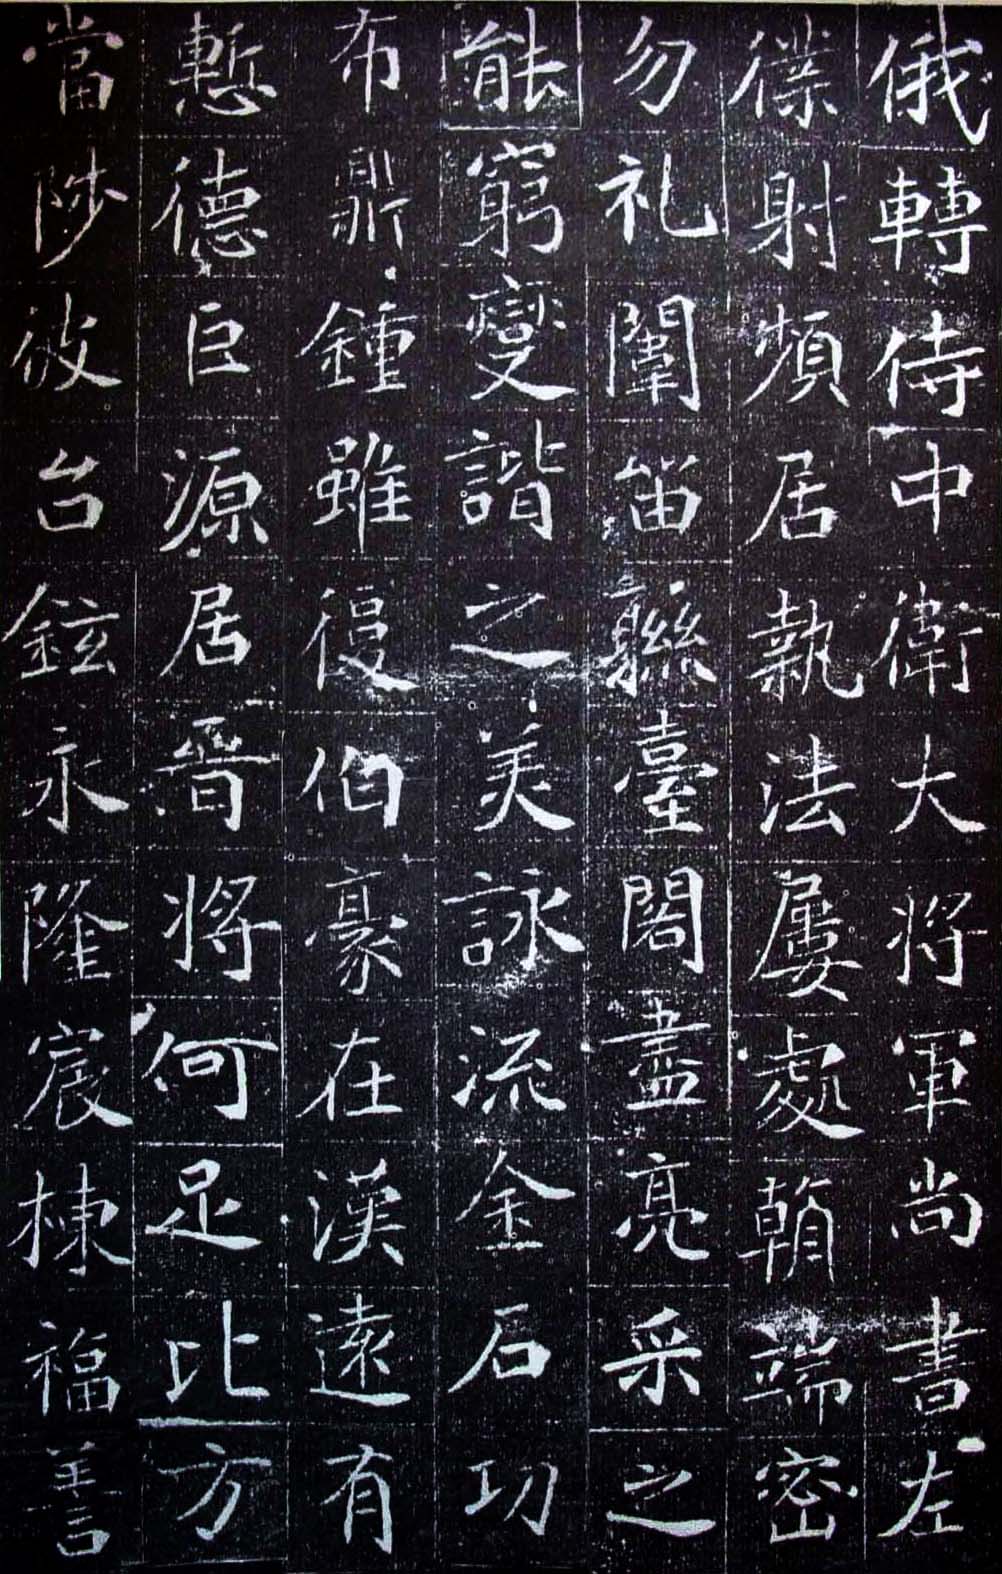 俄轉侍中衛大將軍尚書左
僕射頻居執法屢處朝端密
勿礼闈畄聯臺閣盡亮采之
能窮變諧之美詠流金石功
布鼎鍾雖復伯豪在漢遠有
慙德巨源居晉將何足比方
當陟彼台鉉永隆宸棟福善